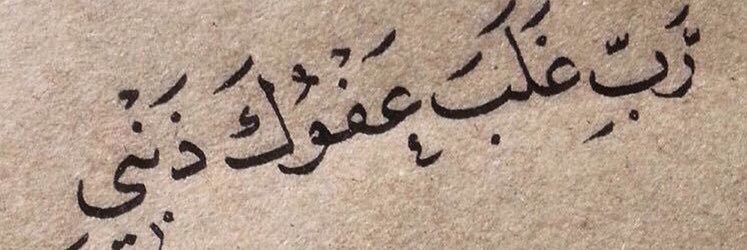 رَّبِّ غَلَبَ عَفْوُكَ ذَنْبِي